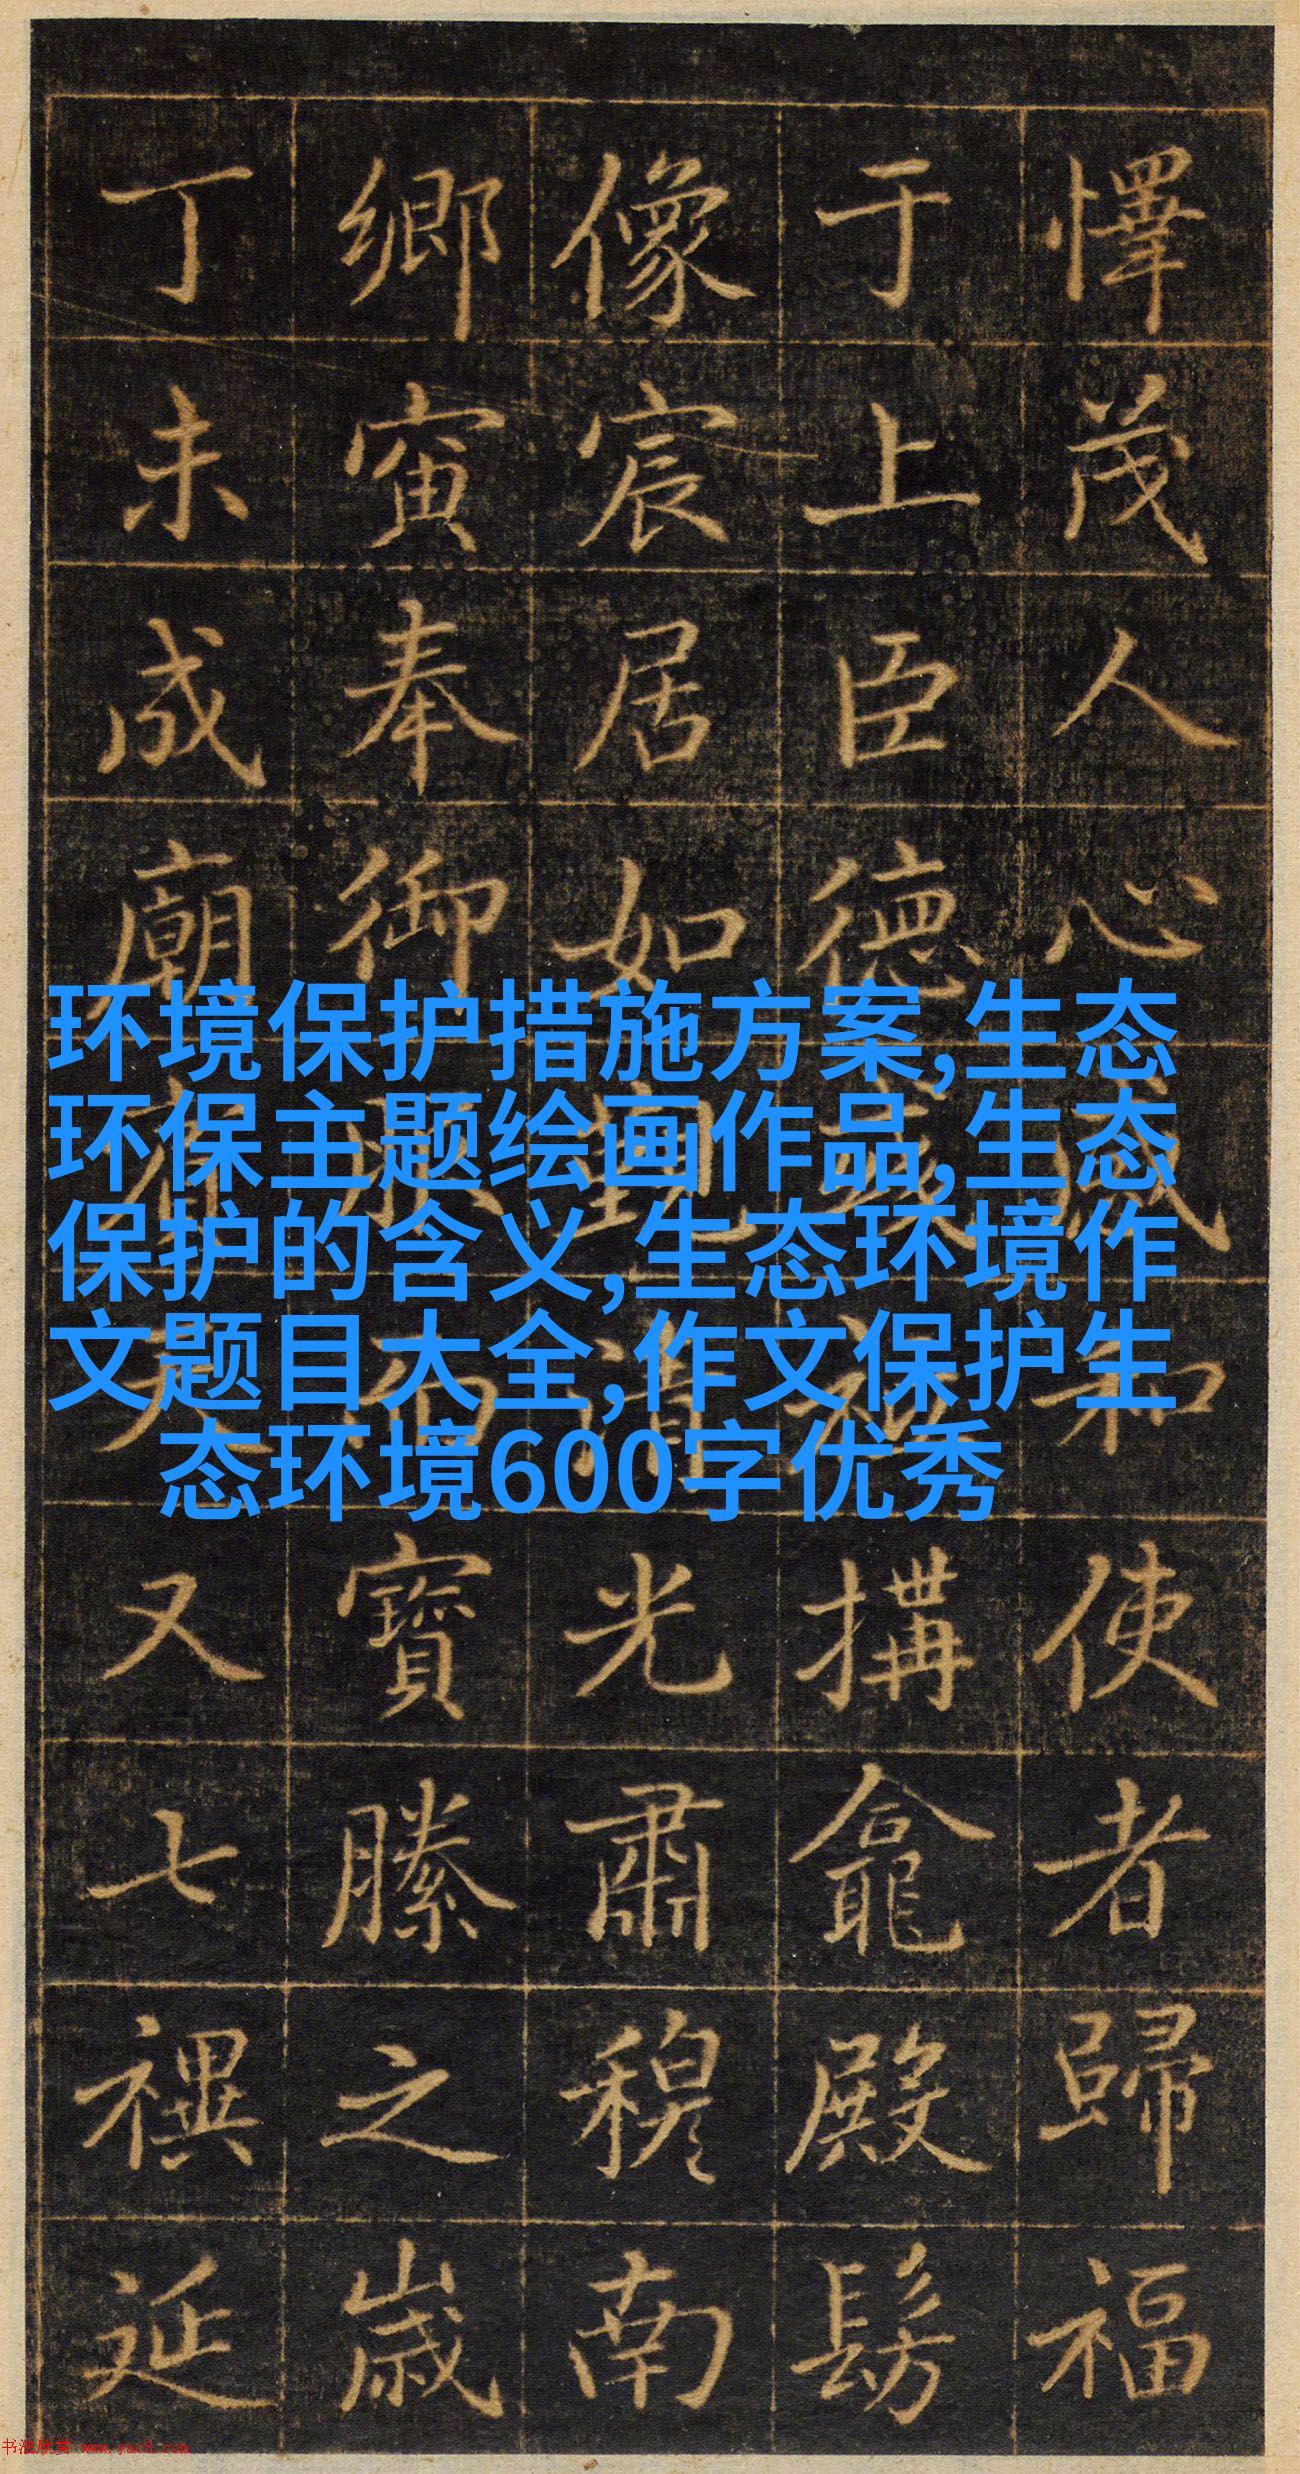 懌茂人心和使者歸福
于上臣德搆龕殿髣
像宸居如清光肅穆南
鄉寅奉御寶縢之歲
丁未成廟又七禩延
环境保护措施方案,生态
环保主题绘画作品,生态
保护的含义,生态环境作
文题目大全,作文保护生
态环境600字优秀
书法欣赏 www.yac8.com